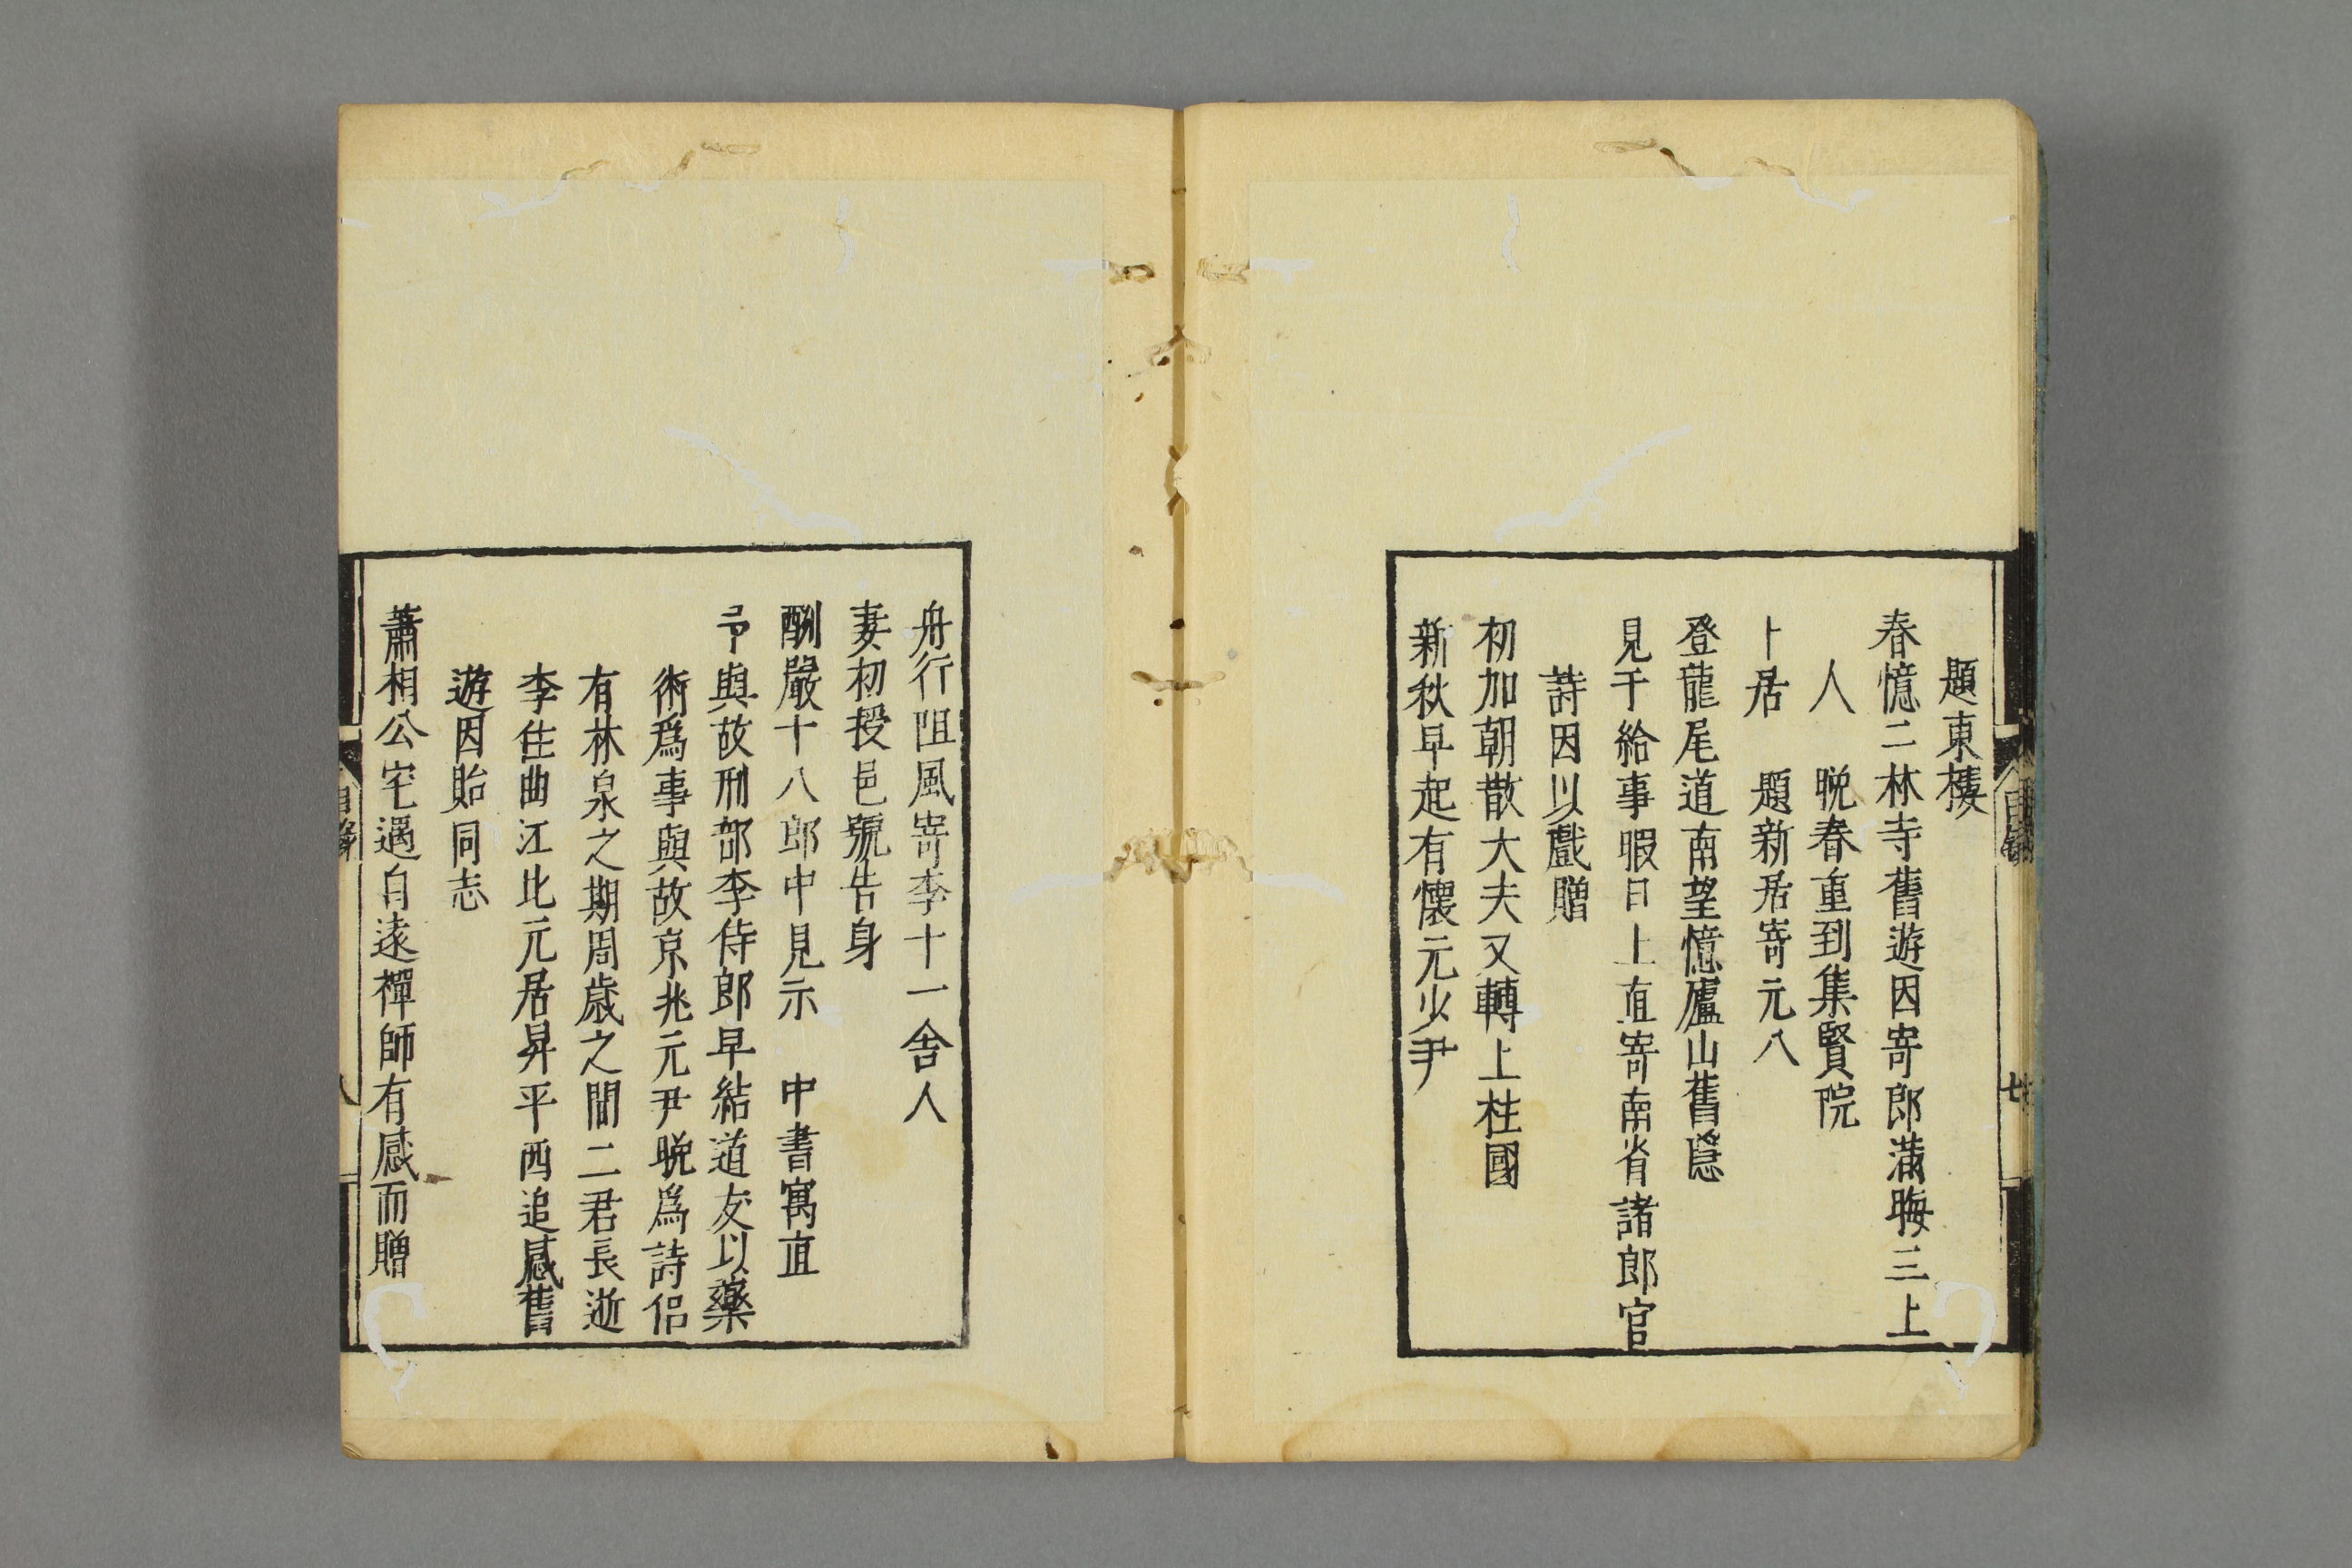 題東樓
春憶二林寺舊遊因寄郎滿晦三上
人　晚春重到集賢院
卜居　題新居寄元八
登龍尾道南望憶廬山舊隱
見于給事暇日上直寄南省諸郎官
詩因以戲贈
初加朝散大夫又轉上柱國
新秋早起有懷元少尹
目錄
七
舟行阻風寄李十一舍人
妻初授邑號告身
酬嚴十八郎中見示　中書寓直
予與故刑部李侍郎早結道友以藥
術爲事與故京兆元尹晚爲詩侶
有林泉之期周歲之間二君長逝
李住曲江北元居昇平西追感舊
遊因貽同志
蕭相公宅遇自遠禪師有感而贈
目錄
八